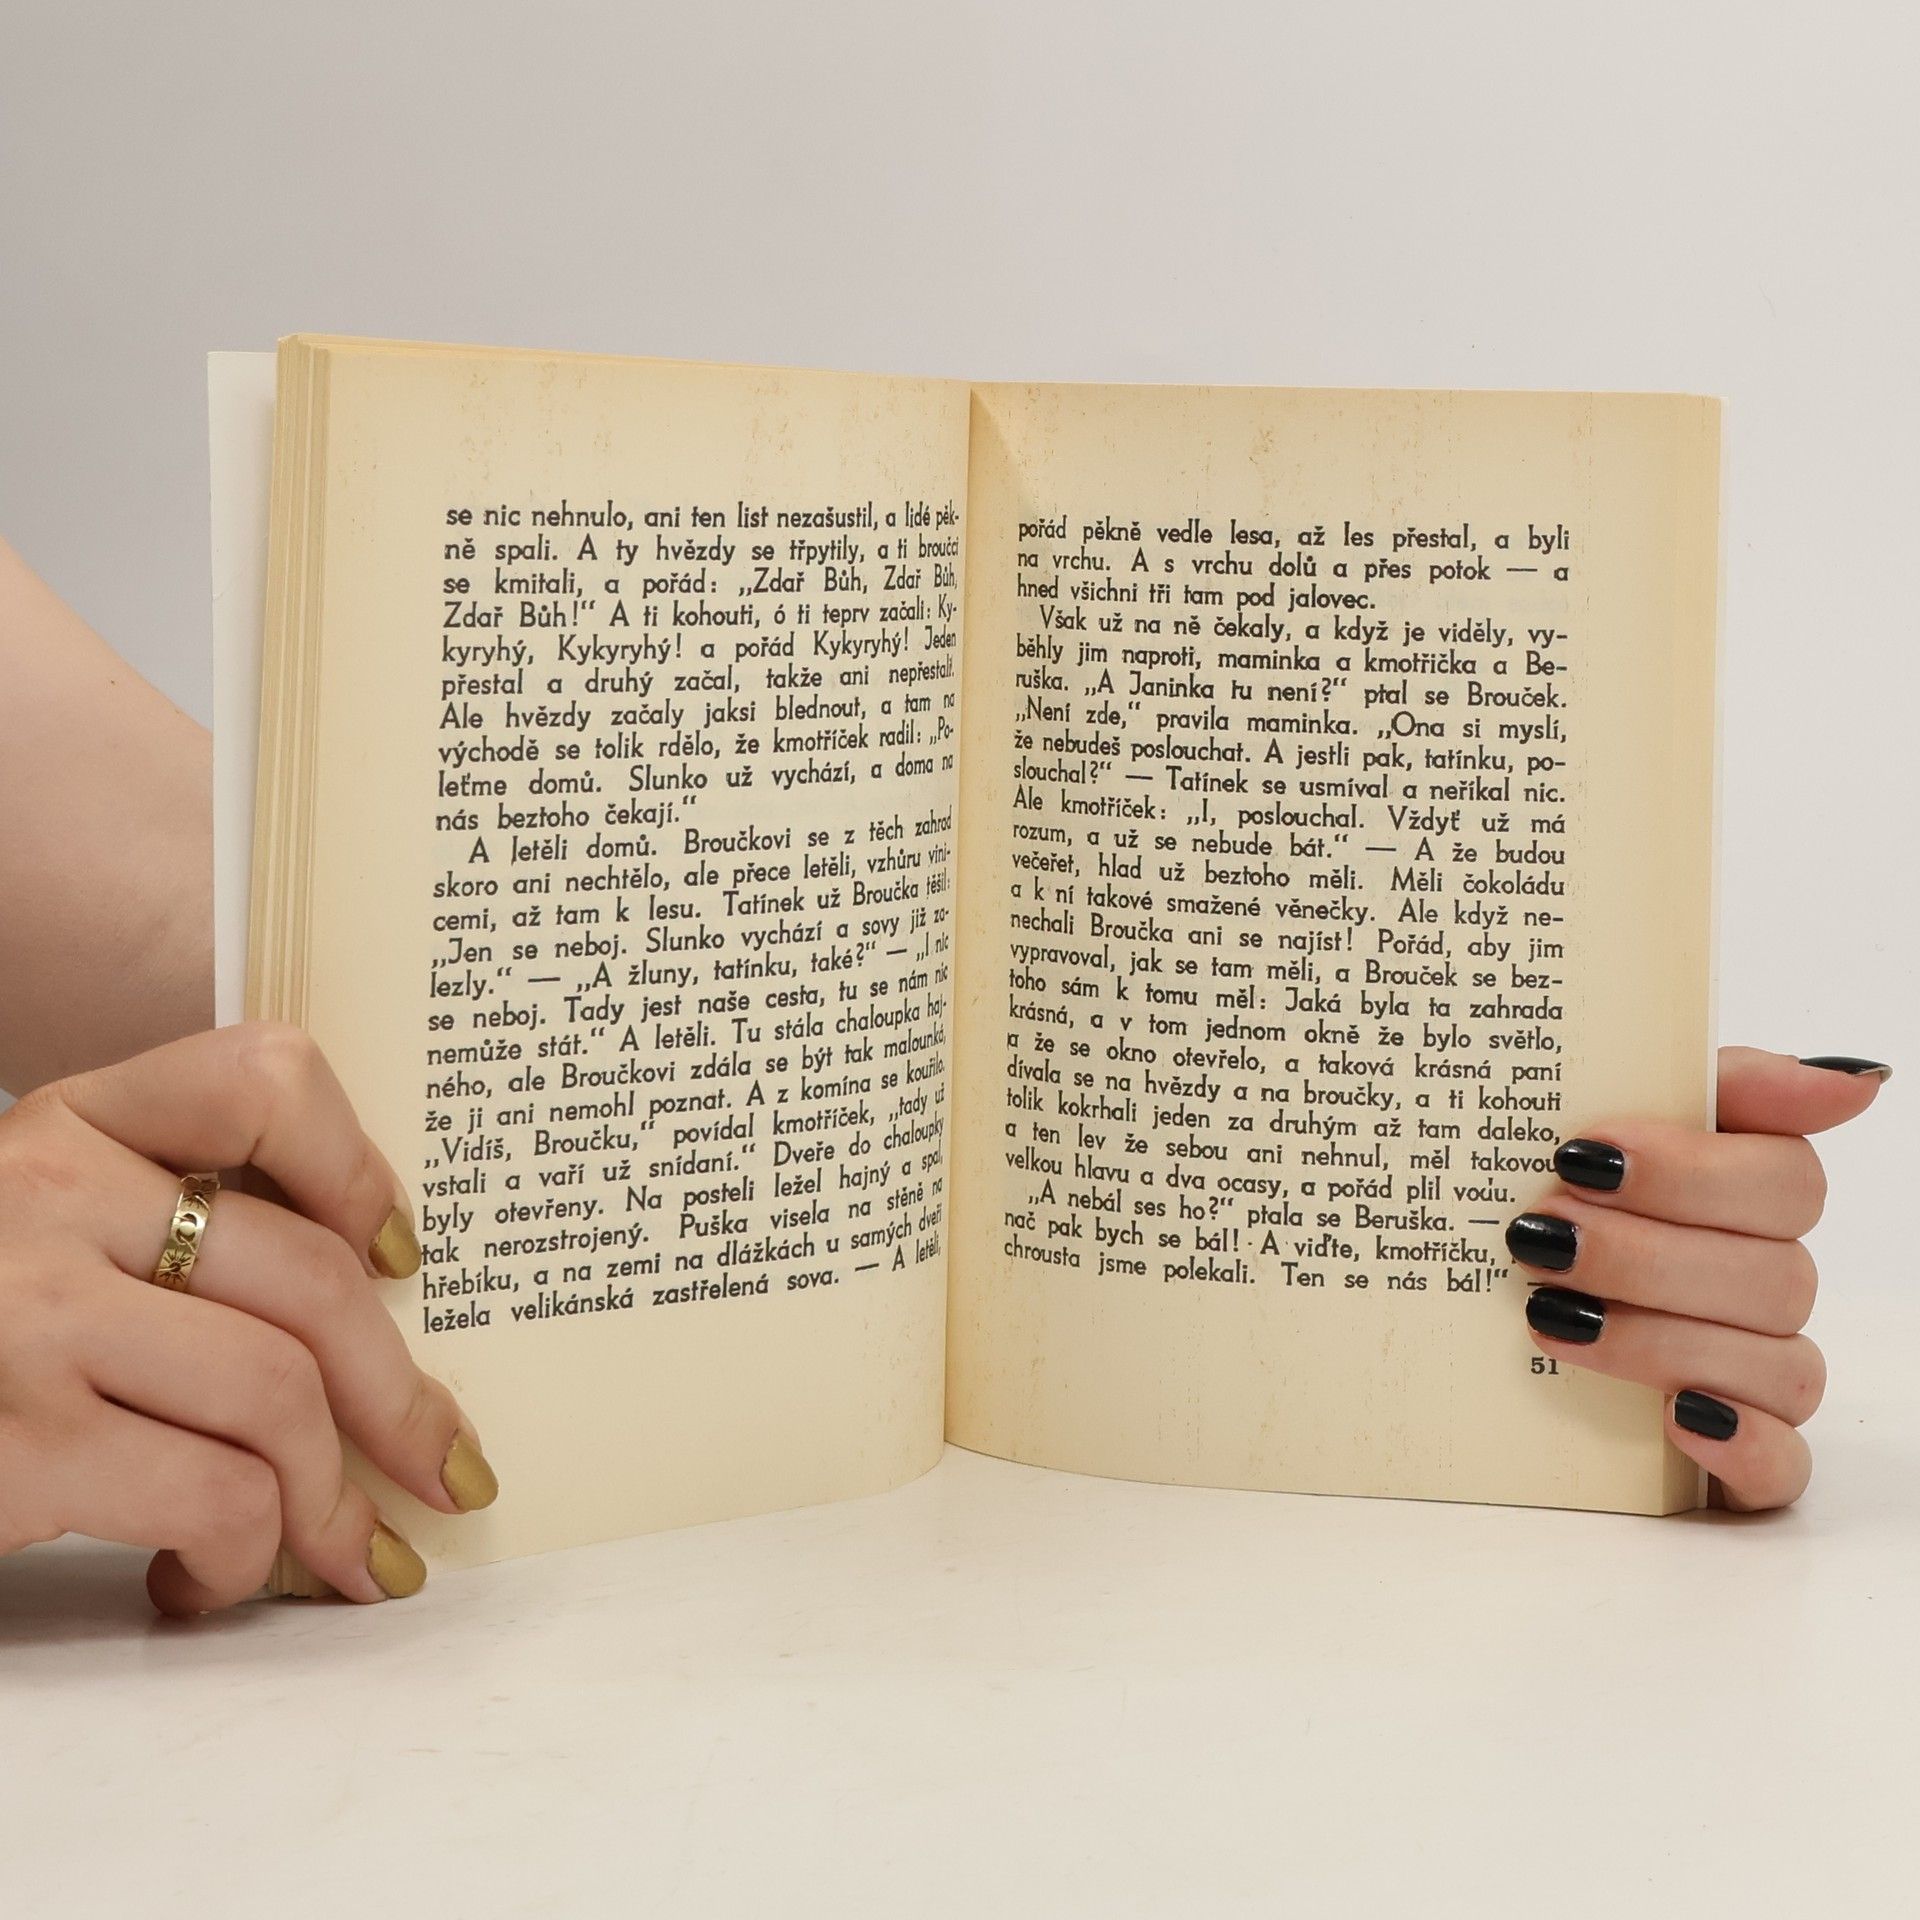 se nic nehnulo, ani ten list nezašustil, a lidé pěk-
ně spali. A ty hvězdy se třpytily, a ti broučci
se kmitali, a pořád: „Zdař Bůh, Zdař Bůh,
Zdař Bůh!“ A ti kohouti, ó ti teprv začali: Ky-
kyryhý, Kykyryhý! a pořád Kykyryhý! Jeden
přestal a druhý začal, takže ani nepřestali.
Ale hvězdy začaly jaksi blednout, a tam na
východě se tolik rdělo, že kmotříček radil: „Po-
leťme domů. Slunko už vychází, a doma na
nás beztoho čekají.“
A letěli domů. Broučkovi se z těch zahrad
skoro ani nechtělo, ale přece letěli, vzhůru vini-
cemi, až tam k lesu. Tatínek už Broučka těšil:
„Jen se neboj. Slunko vychází a sovy již za-
lezly.“ — „A žluny, tatínku, také?“ — „I nic
se neboj. Tady jest naše cesta, tu se nám nic
nemůže stát.“ A letěli. Tu stála chaloupka haj-
ného, ale Broučkovi zdála se být tak malounká,
že ji ani nemohl poznat. A z komína se kouřilo.
„Vidíš, Broučku,“ povídal kmotříček, „tady už
vstali a vaří už snídaní.“ Dveře do chaloupky
byly otevřeny. Na posteli ležel hajný a spal,
tak nerozstrojený. Puška visela na stěně na
hřebíku, a na zemi na dlážkách u samých dveří
ležela velikánská zastřelená sova. — A letěli,
pořád pěkně vedle lesa, až les přestal, a byli
na vrchu. A s vrchu dolů a přes potok — a
hned všichni tři tam pod jalovec.
Však už na ně čekaly, a když je viděly, vy-
běhly jim naproti, maminka a kmotřička a Be-
ruška. „A Janinka tu není?“ ptal se Brouček.
„Není zde,“ pravila maminka. „Ona si myslí,
že nebudeš poslouchat. A jestli pak, tatínku, po-
slouchal?“ — Tatínek se usmíval a neříkal nic.
Ale kmotříček: „I, poslouchal. Vždyť už má
rozum, a už se nebude bát.“ — A že budou
večeřet, hlad už beztoho měli. Měli čokoládu
a k ní takové smažené věnečky. Ale když ne-
nechali Broučka ani se najíst! Pořád, aby jim
vypravoval, jak se tam měli, a Brouček se bez-
toho sám k tomu měl: Jaká byla ta zahrada
krásná, a v tom jednom okně že bylo světlo,
a že se okno otevřelo, a taková krásná paní
dívala se na hvězdy a na broučky, a ti kohouti
tolik kokrhali jeden za druhým až tam daleko,
a ten lev že sebou ani nehnul, měl takovou
velkou hlavu a dva ocasy, a pořád plil vodu.
„A nebál ses ho?“ ptala se Beruška. —
nač pak bych se bál! A viďte, kmotříčku,
chrousta jsme polekali. Ten se nás bál!“ —
51